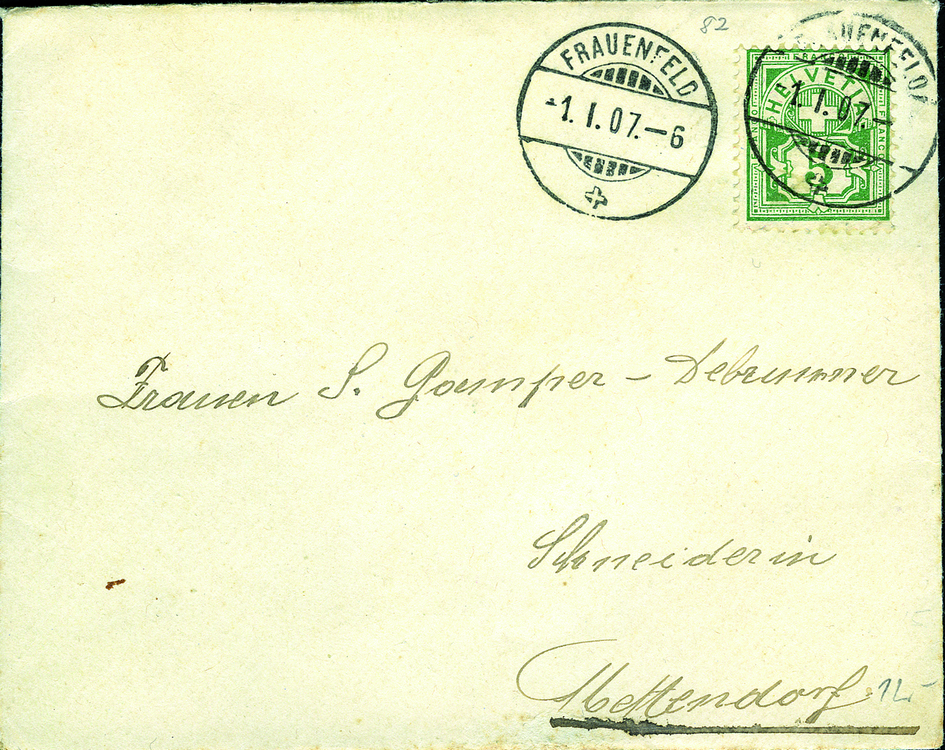 82
FRAUENFELD
-1. I. 07.-6
FRAUENFELD
1. I. 07.-
HELVETIA
FRANCO
5
Frauen S. Gamper - Debrunner
Schneiderin
Mettendorf
12.-